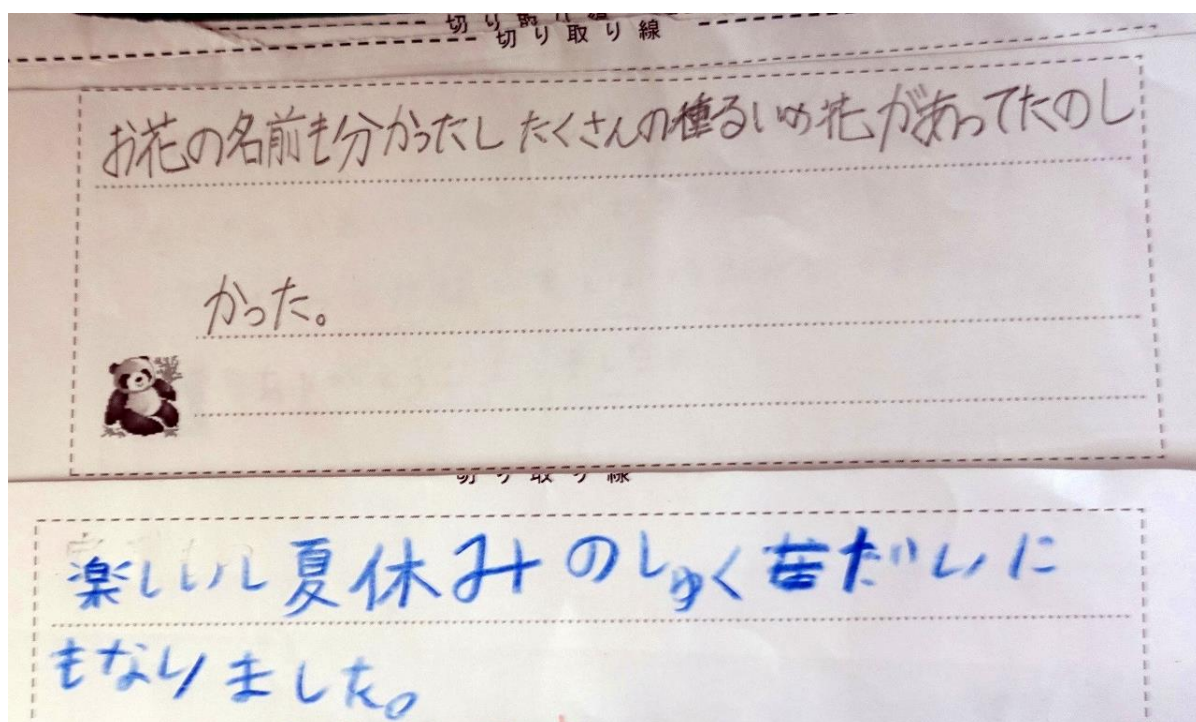 切り取り線
切り取り線
お花の名前も分かったし たくさんの種るいの花があってたのし
かった。
切り取り線
楽しいし夏休みのしゅくだいに
もなりました。